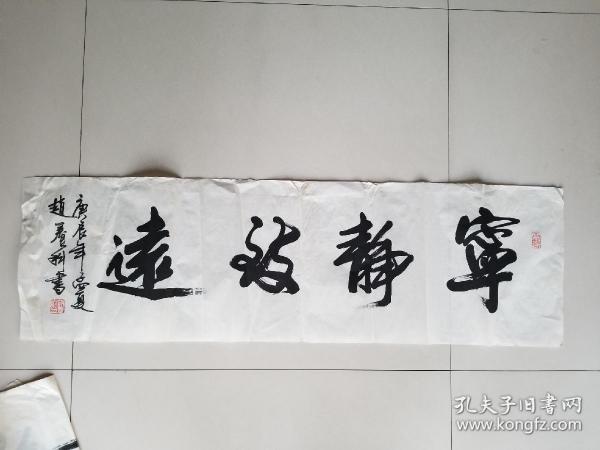 寧靜致遠
庚辰年之夏
趙養科書
孔夫子旧書网
www.kongfz.com